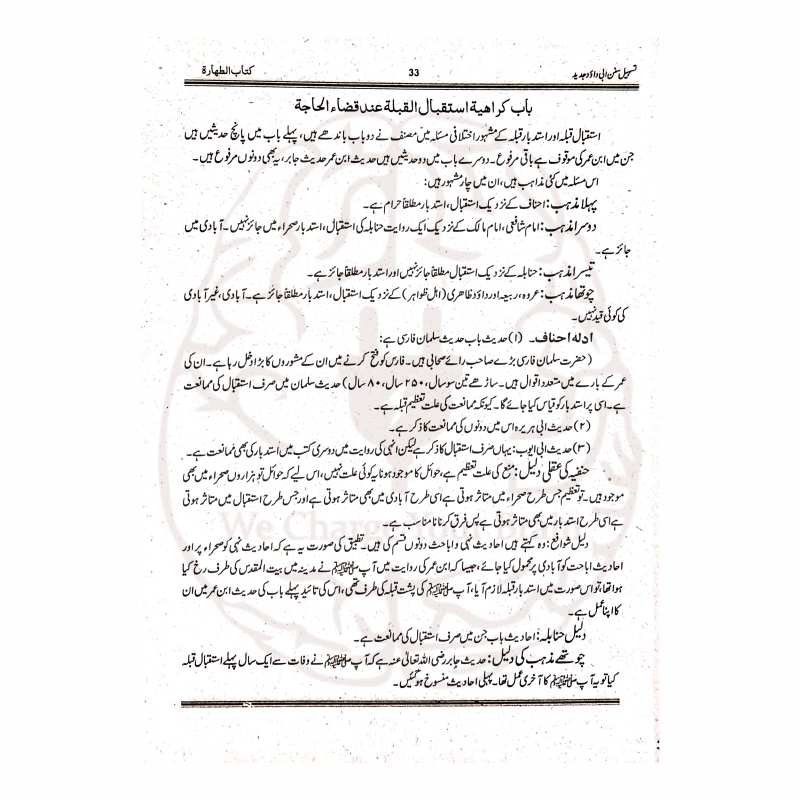 تسہیل سنن ابی داؤد جدید 33 کتاب الطهارة
باب کراهية استقبال القبلة عند قضاء الحاجة
استقبال قبلہ اور استدبار قبلہ کے مشہور اختلافی مسئلہ میں مصنف نے دو باب باندھے ہیں، پہلے باب میں پانچ حدیثیں ہیں
جن میں ابن عمر کی موقوف ہے باقی مرفوع۔ دوسرے باب میں دو حدیثیں ہیں حدیث ابن عمر حدیث جابر، یہ بھی دونوں مرفوع ہیں۔
اس مسئلہ میں کئی مذاہب ہیں، ان میں چار مشہور ہیں:
پہلا مذہب: احناف کے نزدیک استقبال، استدبار مطلقاً حرام ہے۔
دوسرا مذہب: امام شافعی، امام مالک کے نزدیک ایک روایت حنابلہ کی استقبال، استدبار صحراء میں جائز نہیں۔ آبادی میں
جائز ہے۔
تیسرا مذہب: حنابلہ کے نزدیک استقبال مطلقاً جائز نہیں اور استدبار مطلقاً جائز ہے۔
چوتھا مذہب: عروہ، ربیعہ اور داؤد ظاہری (اہل ظواہر) کے نزدیک استقبال، استدبار مطلقاً جائز ہے۔ آبادی، غیر آبادی
کی کوئی قید نہیں۔
ادلہ احناف۔ (۱) حدیث باب حدیث سلمان فارسی ہے:
(حضرت سلمان فارسی بڑے صاحب رائے صحابی ہیں۔ فارس کو فتح کرنے میں ان کے مشوروں کا بڑا دخل رہا ہے۔ ان کی
عمر کے بارے میں متعدد اقوال ہیں۔ ساڑھے تین سو سال، ۲۵۰ سال، ۸۰ سال) حدیث سلمان میں صرف استقبال کی ممانعت
ہے۔ اسی پر استدبار کو قیاس کیا جائے گا۔ کیونکہ ممانعت کی علت تعظیم قبلہ ہے۔
(۲) حدیث ابی ہریرہ اس میں دونوں کی ممانعت کا ذکر ہے۔
(۳) حدیث ابی ایوب: یہاں صرف استقبال کا ذکر ہے لیکن انہی کی روایت میں دوسری کتب میں استدبار کی بھی ممانعت ہے۔
حنفیہ کی عقلی دلیل: منع کی علت تعظیم ہے، حوائل کا موجود ہونا یہ کوئی علت نہیں، اس لیے کہ حوائل تو ہزاروں صحراء میں بھی
موجود ہیں۔ تو تعظیم جس طرح صحراء میں متاثر ہوتی ہے اسی طرح آبادی میں بھی متاثر ہوتی ہے اور جس طرح استقبال میں متاثر ہوتی
ہے اسی طرح استدبار میں بھی متاثر ہوتی ہے پس فرق کرنا نا مناسب ہے۔
دلیل شوافع: وہ کہتے ہیں احادیث نہی و اباحت دونوں قسم کی ہیں۔ تطبیق کی صورت یہ ہے کہ احادیث نہی کو صحراء پر اور
احادیث اباحت کو آبادی پر محمول کیا جائے، جیسا کہ ابن عمر کی روایت میں آپ ﷺ نے مدینہ میں بیت المقدس کی طرف رخ کیا
ہوا تھا، تو اس صورت میں استدبار قبلہ لازم آیا، آپ ﷺ کی پشت قبلہ کی طرف تھی، اس کی تائید پہلے باب کی حدیث ابن عمر میں ان
کا اپنا عمل ہے۔
دلیل حنابلہ: احادیث باب جن میں صرف استقبال کی ممانعت ہے۔
چوتھے مذہب کی دلیل: حدیث جابر رضی اللہ تعالیٰ عنہ ہے کہ آپ ﷺ نے وفات سے ایک سال پہلے استقبال قبلہ
کیا تو یہ آپ ﷺ کا آخری عمل تھا۔ پہلی احادیث منسوخ ہو گئیں۔